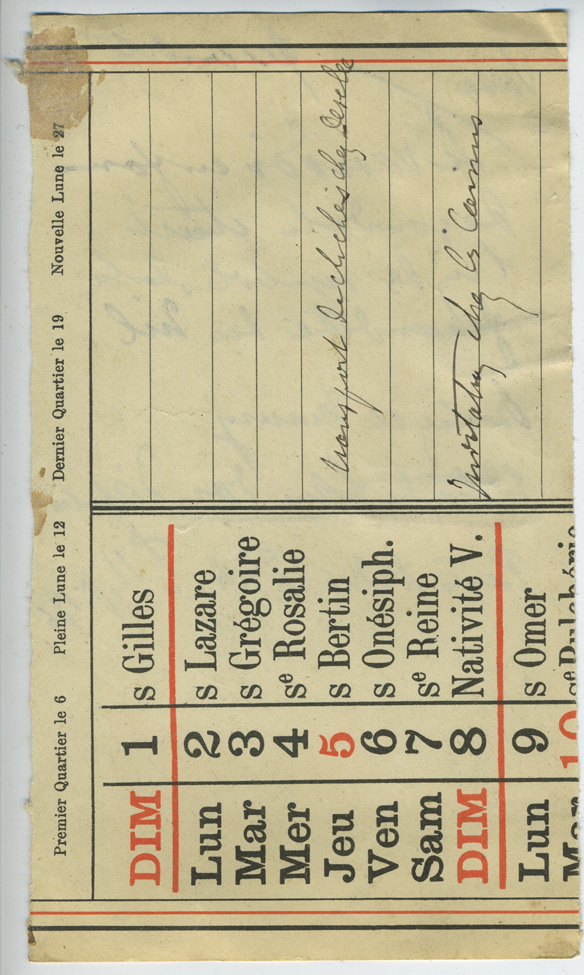 Premier Quartier le 6 Pleine Lune le 12 Dernier Quartier le 19 Nouvelle Lune le 27
DIM 1 s Gilles
Lun 2 s Lazare
Mar 3 s Grégoire
Mer 4 sᵉ Rosalie
Jeu 5 s Bertin transport de clichés chez
Ven 6 s Onésiph.
Sam 7 sᵉ Reine
DIM 8 Nativité V. Invitation chez
Lun 9 s Omer
Mar 10 sᵉ Pulchérie